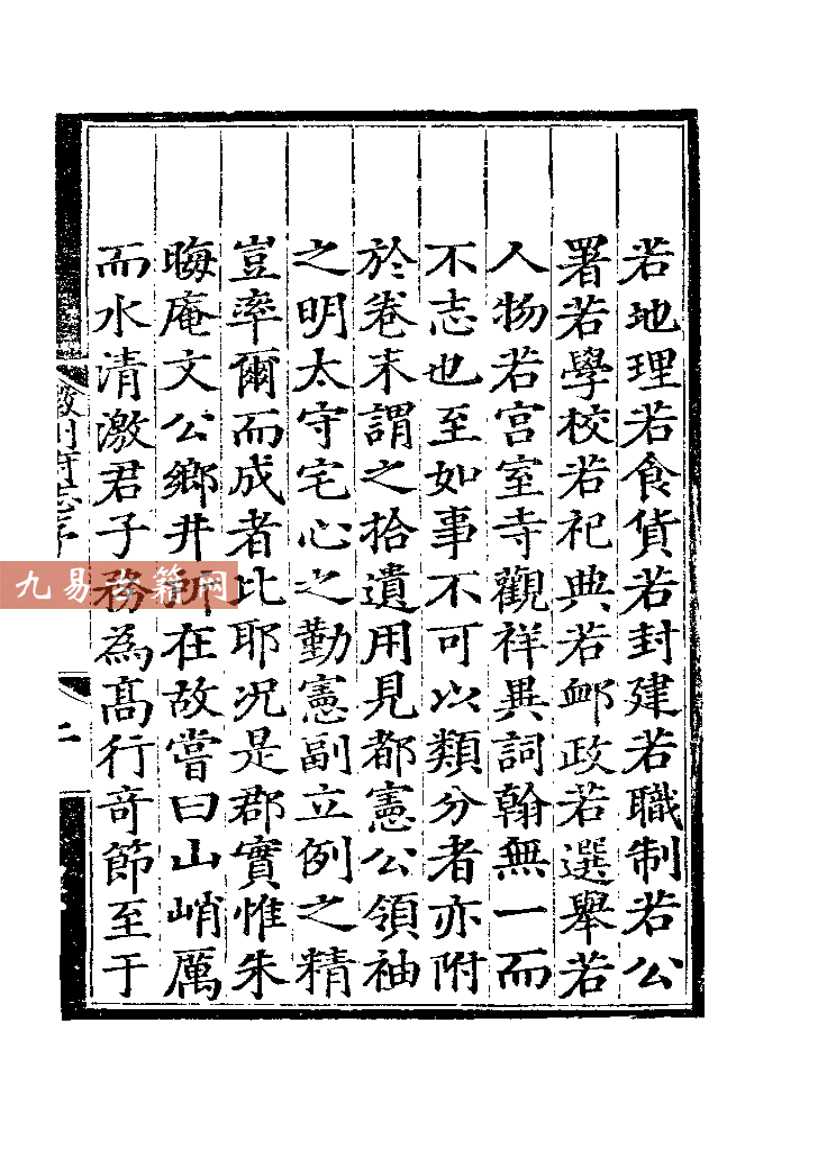 若地理若食貨若封建若職制若公
署若學校若祀典若卹政若選舉若
人物若宮室寺觀祥異詞翰無一而
不志也至如事不可以類分者亦附
於卷末謂之拾遺用見都憲公領袖
之明太守宅心之勤憲副立例之精
豈率爾而成者比耶况是郡實惟朱
晦庵文公鄉井所在故嘗曰山峭厲
而水清激君子務為髙行竒節至于
志序
二
九易古籍网